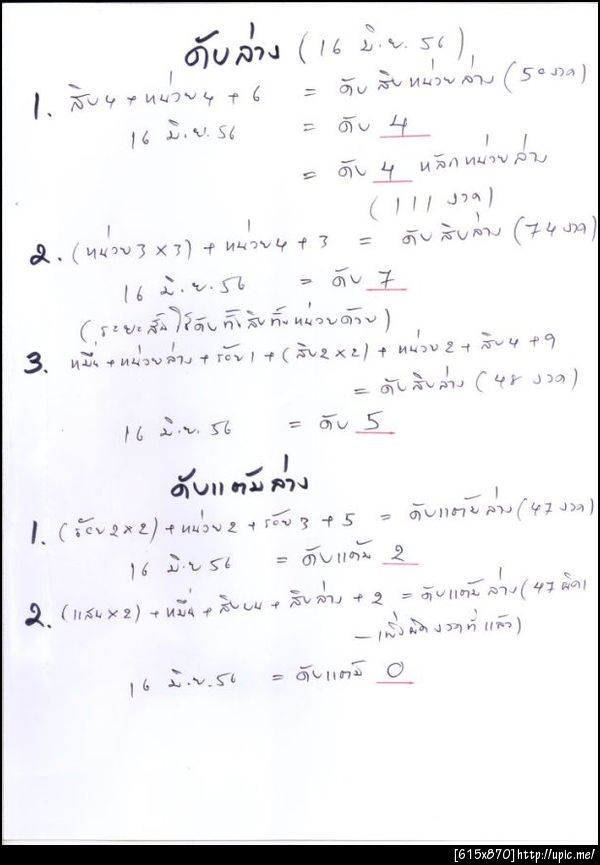 ดับล่าง (16 มิ.ย. 56)
1. สิบ4 + หน่วย4 + 6 = ดับ สิบหน่วยล่าง (50 งวด)
16 มิ.ย. 56 = ดับ 4
= ดับ 4 หลักหน่วยล่าง
(111 งวด)
2. (หน่วย3 x 3) + หน่วย4 + 3 = ดับ สิบล่าง (74 งวด)
16 มิ.ย. 56 = ดับ 7
(ระยะสั้นใช้ดับทั้งสิบทั้งหน่วยด้วย)
3. หมื่น + หน่วยล่าง + ร้อย1 + (สิบ2 x 2) + หน่วย2 + สิบ4 + 9
= ดับสิบล่าง (48 งวด)
16 มิ.ย. 56 = ดับ 5
ดับแต้มล่าง
1. (ร้อย2 x 2) + หน่วย2 + ร้อย3 + 5 = ดับแต้มล่าง (47 งวด)
16 มิ.ย 56 = ดับแต้ม 2
2. (แสน x 2) + หมื่น + สิบบน + สิบล่าง + 2 = ดับแต้มล่าง (47 ผิด1
- เพิ่งผิดงวดที่แล้ว)
16 มิ.ย. 56 = ดับแต้ม 0
[615x870]http://upic.me/